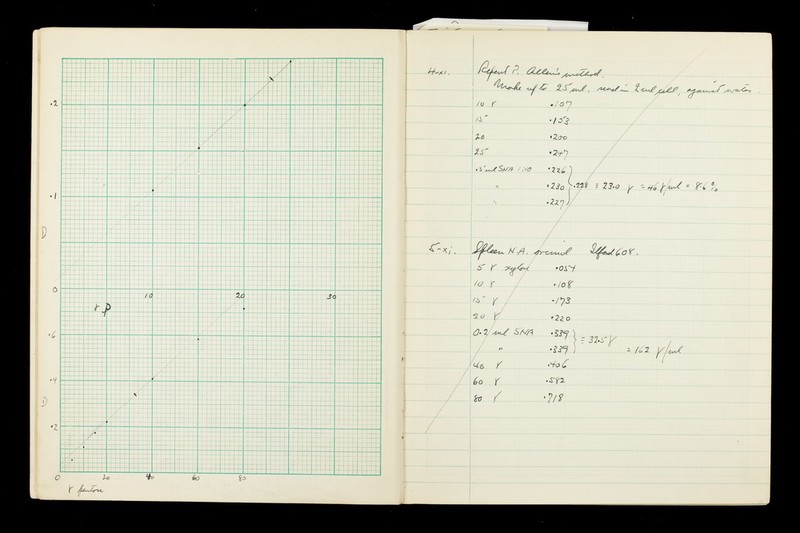 .2
.1
D
0
10
20
30
γ P
.6
.4
D
.2
0
20
40
60
80
γ pentose
4-xi.
Repeat P. Allen's method.
Make up to 25 ml, read in 2 ml cell, against water.
10 γ .107
15 .153
20 .200
25 .247
.5 ml SNA 1:10 .226
" .230 } .228 ≡ 23.0 γ = 46 γ/ml = 8.6 %
" .227
5-xi. Spleen N.A. orcinol Ilford 608.
5 γ xylose .054
10 γ .108
15 γ .173
20 γ .220
0.2 ml SNA .339 } ≡ 32.5 γ
" .339 = 162 γ/ml
40 γ .406
60 γ .582
80 γ .718